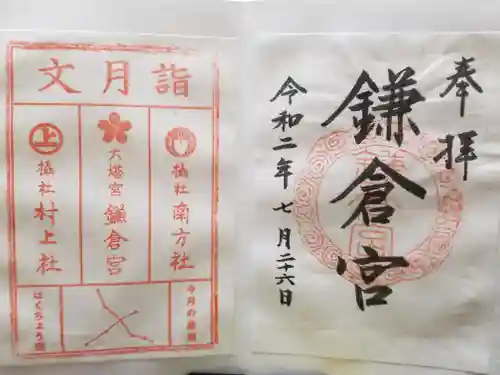 奉拝
鎌倉宮
令和二年七月二十六日
文月詣
摂社南方社
大塔宮鎌倉宮
上
摂社村上社
今月の星座
はくちょう座